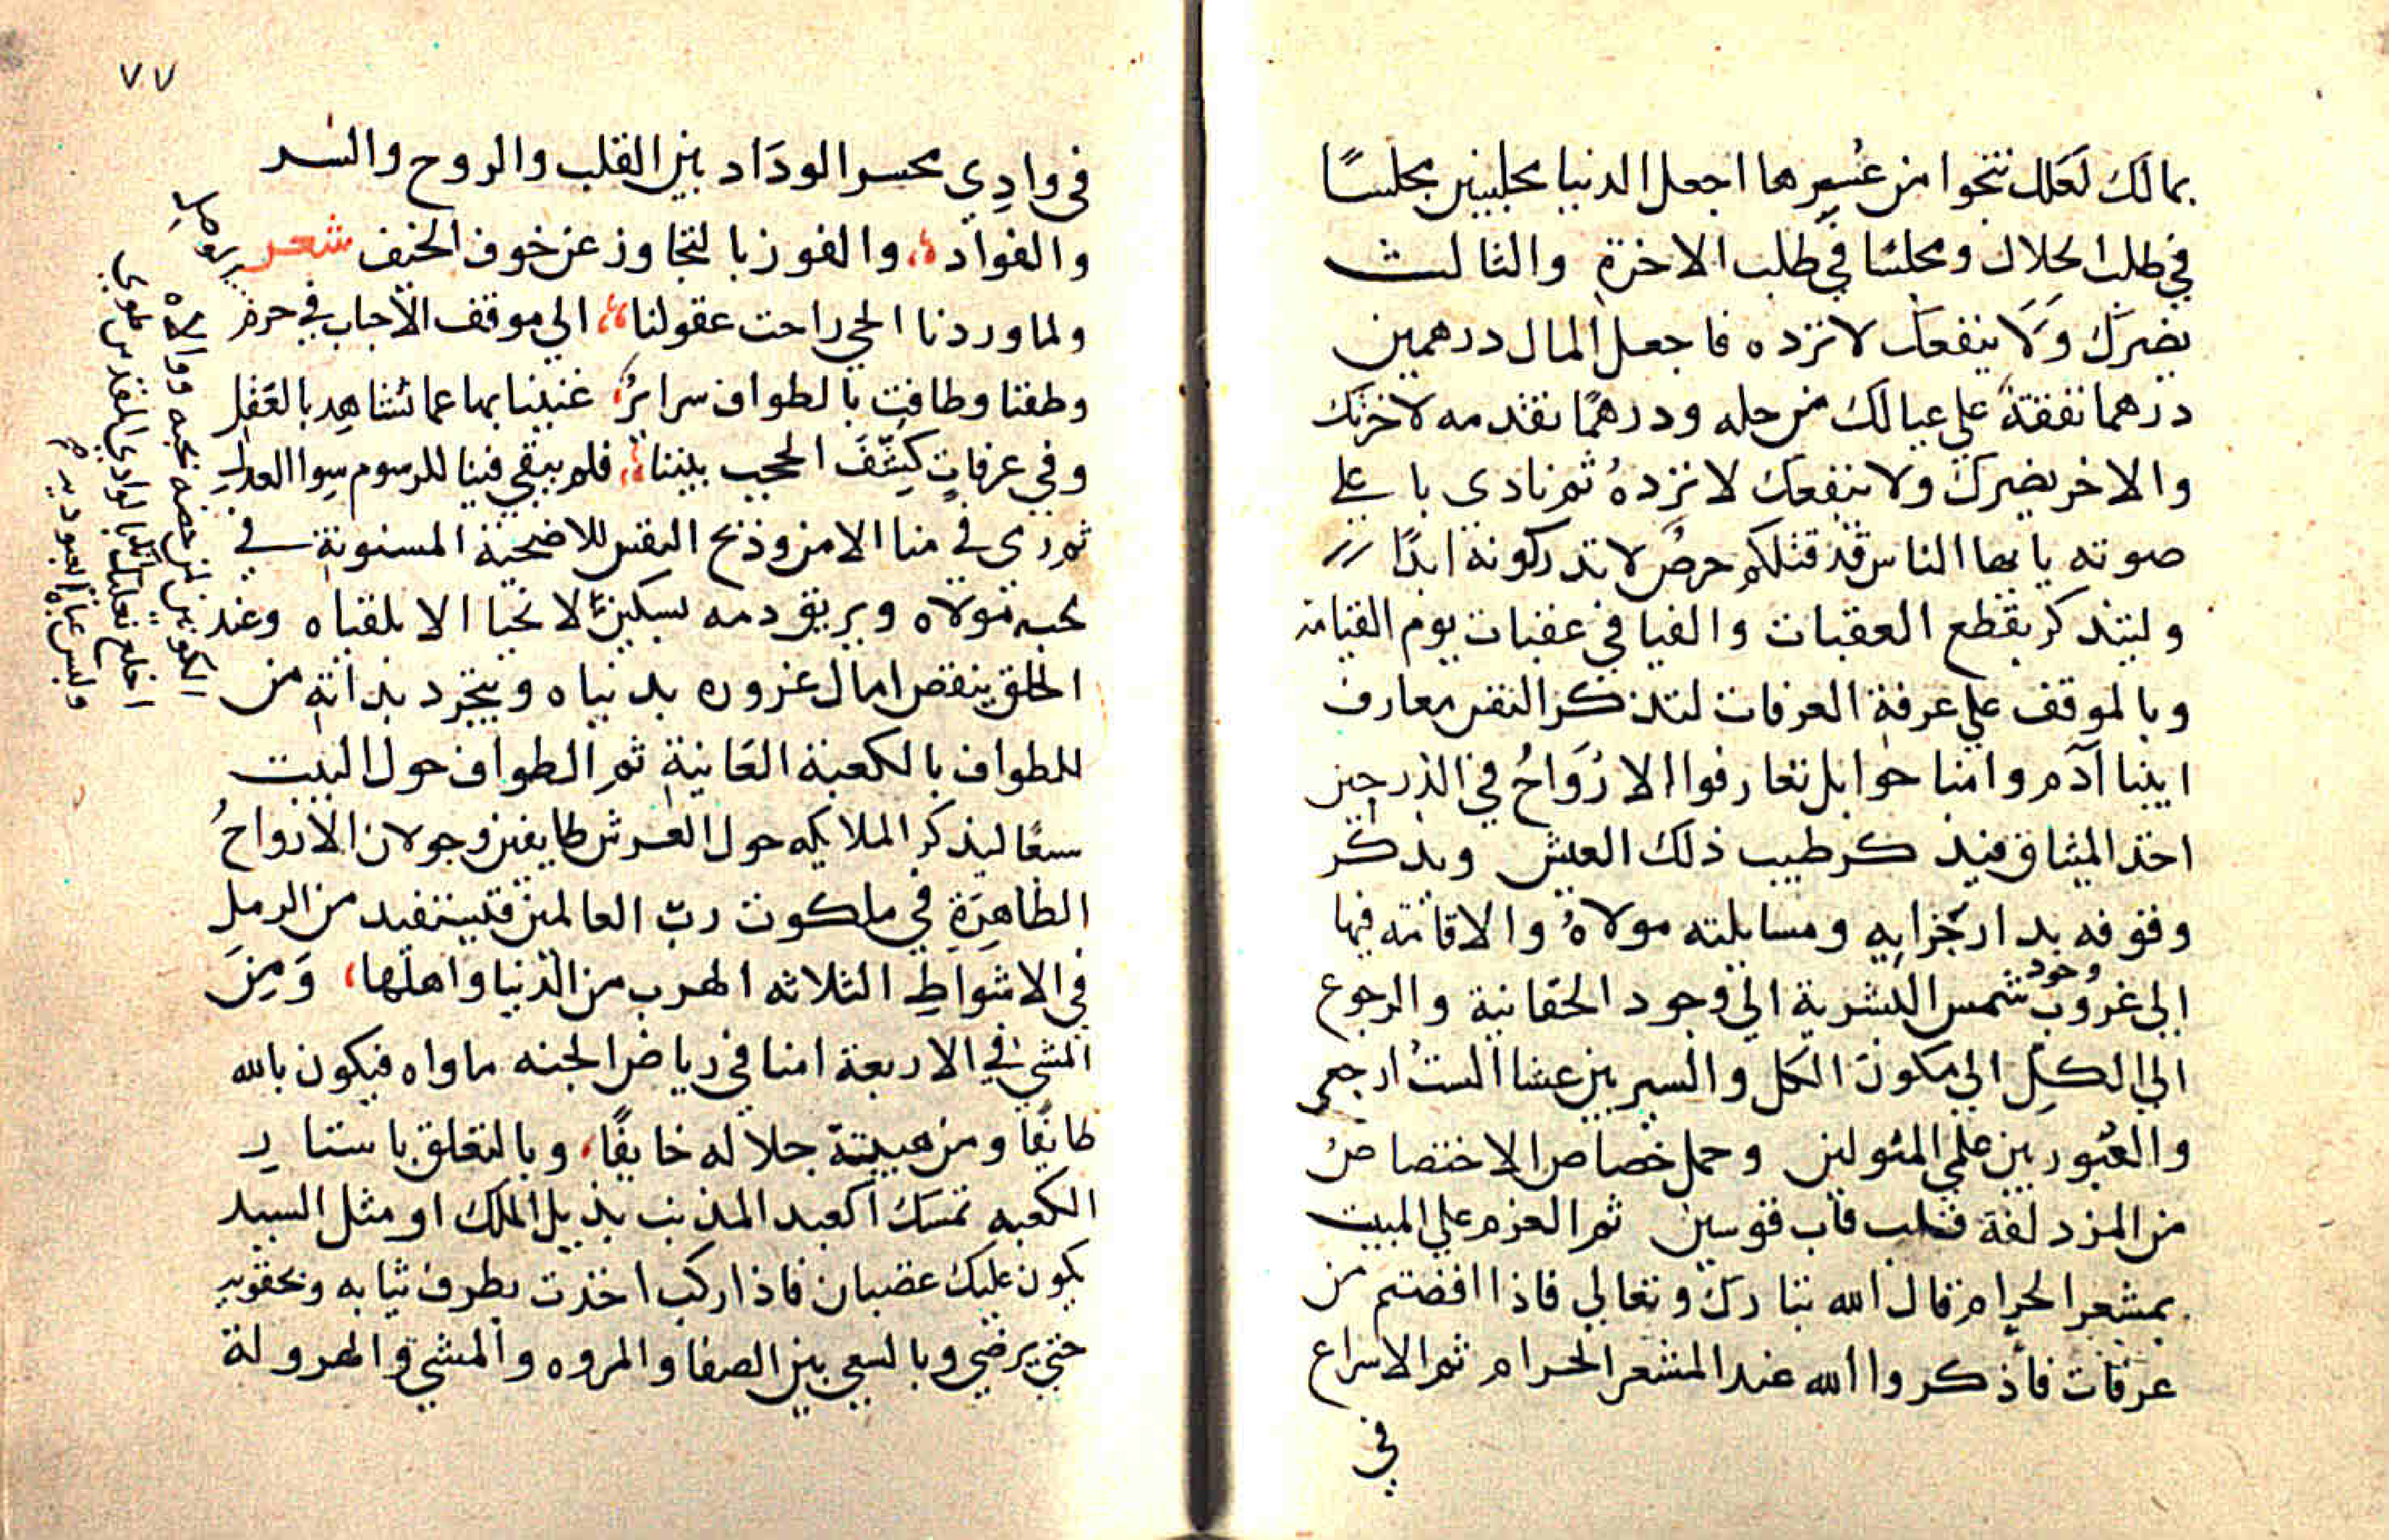 بمالك لعلك تنجوا من عسرها اجعل الدنيا مجلسين مجلسًا
في طلب الحلال ومجلسًا في طلب الاخرة والثالث
يضرك ولا ينفعك لا تزده فاجعل المال درهمين
درهما تنفقة علي عيالك من حله ودرهمًا تقدمه لاخرتك
والاخر يضرك ولا ينفعك لا تزدهُ ثم نادي با علي
صوته يا يها الناس قد قتلكم حرصٌ لا تدركونه ابدًا
وليتذكر بقطع العقبات والفيافي عقبات يوم القيامه
وبالموقف علي عرفة العرفات لتذكر النفس معارف
ابينا آدم وامنا حوا بل تعارفوا الارواحُ في الذر حين
اخذ الميثاق فيذكر طيب ذلك العيش ويذكر
وقوفه بدار جزايه ومسايلته مولاهُ والاقامته فيها
الي غروب وجود شمس البشرية الي وجود الحقانية والرجوع
الي الكل الي مكون الكل والسير بين عشا الست ارجعي
والعبور بين علمي المئولين وحمل خصاص الاختصاص
من المزدلفة قلب قاب قوسين ثم العزم علي المبيت
بمشعر الحرام قال الله تبارك وتعالي فاذا افضتم من
عرفات فاذكروا الله عند المشعر الحرام ثم الاسراع
في
٧٧
في وادِي محسر الوداد بين القلب والروح والسر
والفواد، والفوز بالتجاوز عن خوف الخيف شعر
ولما وردنا الحي راحت عقولنا، الي موقف الاحباب في حرم
وطفنا وطافت بالطواف سرايرٌ، غنينا بها عما نشاهد بالعقل
وفي عرفاتٍ كشف الحجب بيننا، فلم يبقي فينا للرسوم سوا العدل
ثم رمي في منا الامن وذبح النفس للاضحية المسنونة في
محبه مولاه ويريق دمه بسكين لا تحيا الا بلقياه وعند
الحلق ينقص امال غروره بدنياه ويتجرد بذاته من
للطواف بالكعبة العانية ثم الطواف حول البيت
سبعًا ليذكر الملايكه حول العرش طايفين وجولان الارواحُ
الطاهرة في ملكوت ربّ العالمين فليستفيد من الرمل
في الاشواط الثلاثه الهرب من الدنيا واهلها، ومن
المشي في الاربعة امنا في رياض الجنه ماواه فيكون بالله
طايفًا ومن هيبتة جلاله خايفًا، وبالتعلق باستار
الكعبه تمسك اكعبد المذنب بذيل الملك او مثل السيد
يكون عليك غضبان فاذا ركب اخذت بطرف ثيابه وبحقويه
حتي يرضي وبالسعي بين الصفا والمروه والمشي والهرولة
اخلع نعليك انك بالوادي المقدس طوي